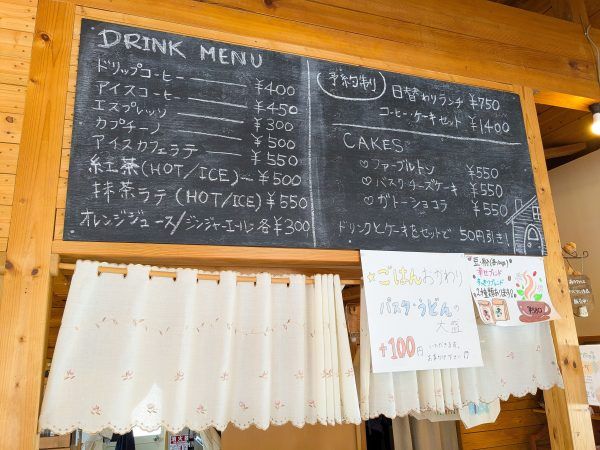 DRINK MENU
ドリップコーヒー ¥400
アイスコーヒー ¥450
エスプレッソ ¥300
カプチーノ ¥500
アイスカフェラテ ¥550
紅茶(HOT/ICE) ¥500
抹茶ラテ(HOT/ICE) ¥550
オレンジジュース/ジンジャーエール 各¥300
予約制
日替わりランチ ¥750
コーヒーケーキセット ¥1400
CAKES
♡ファーブルトン ¥550
♡バスクチーズケーキ ¥550
♡ガトーショコラ ¥550
ドリンクとケーキをセットで 50円引き!
☆ごはんおかわり
パスタ・うどんの
大盛
+100円
いただきます。
幸せブレンド
¥580